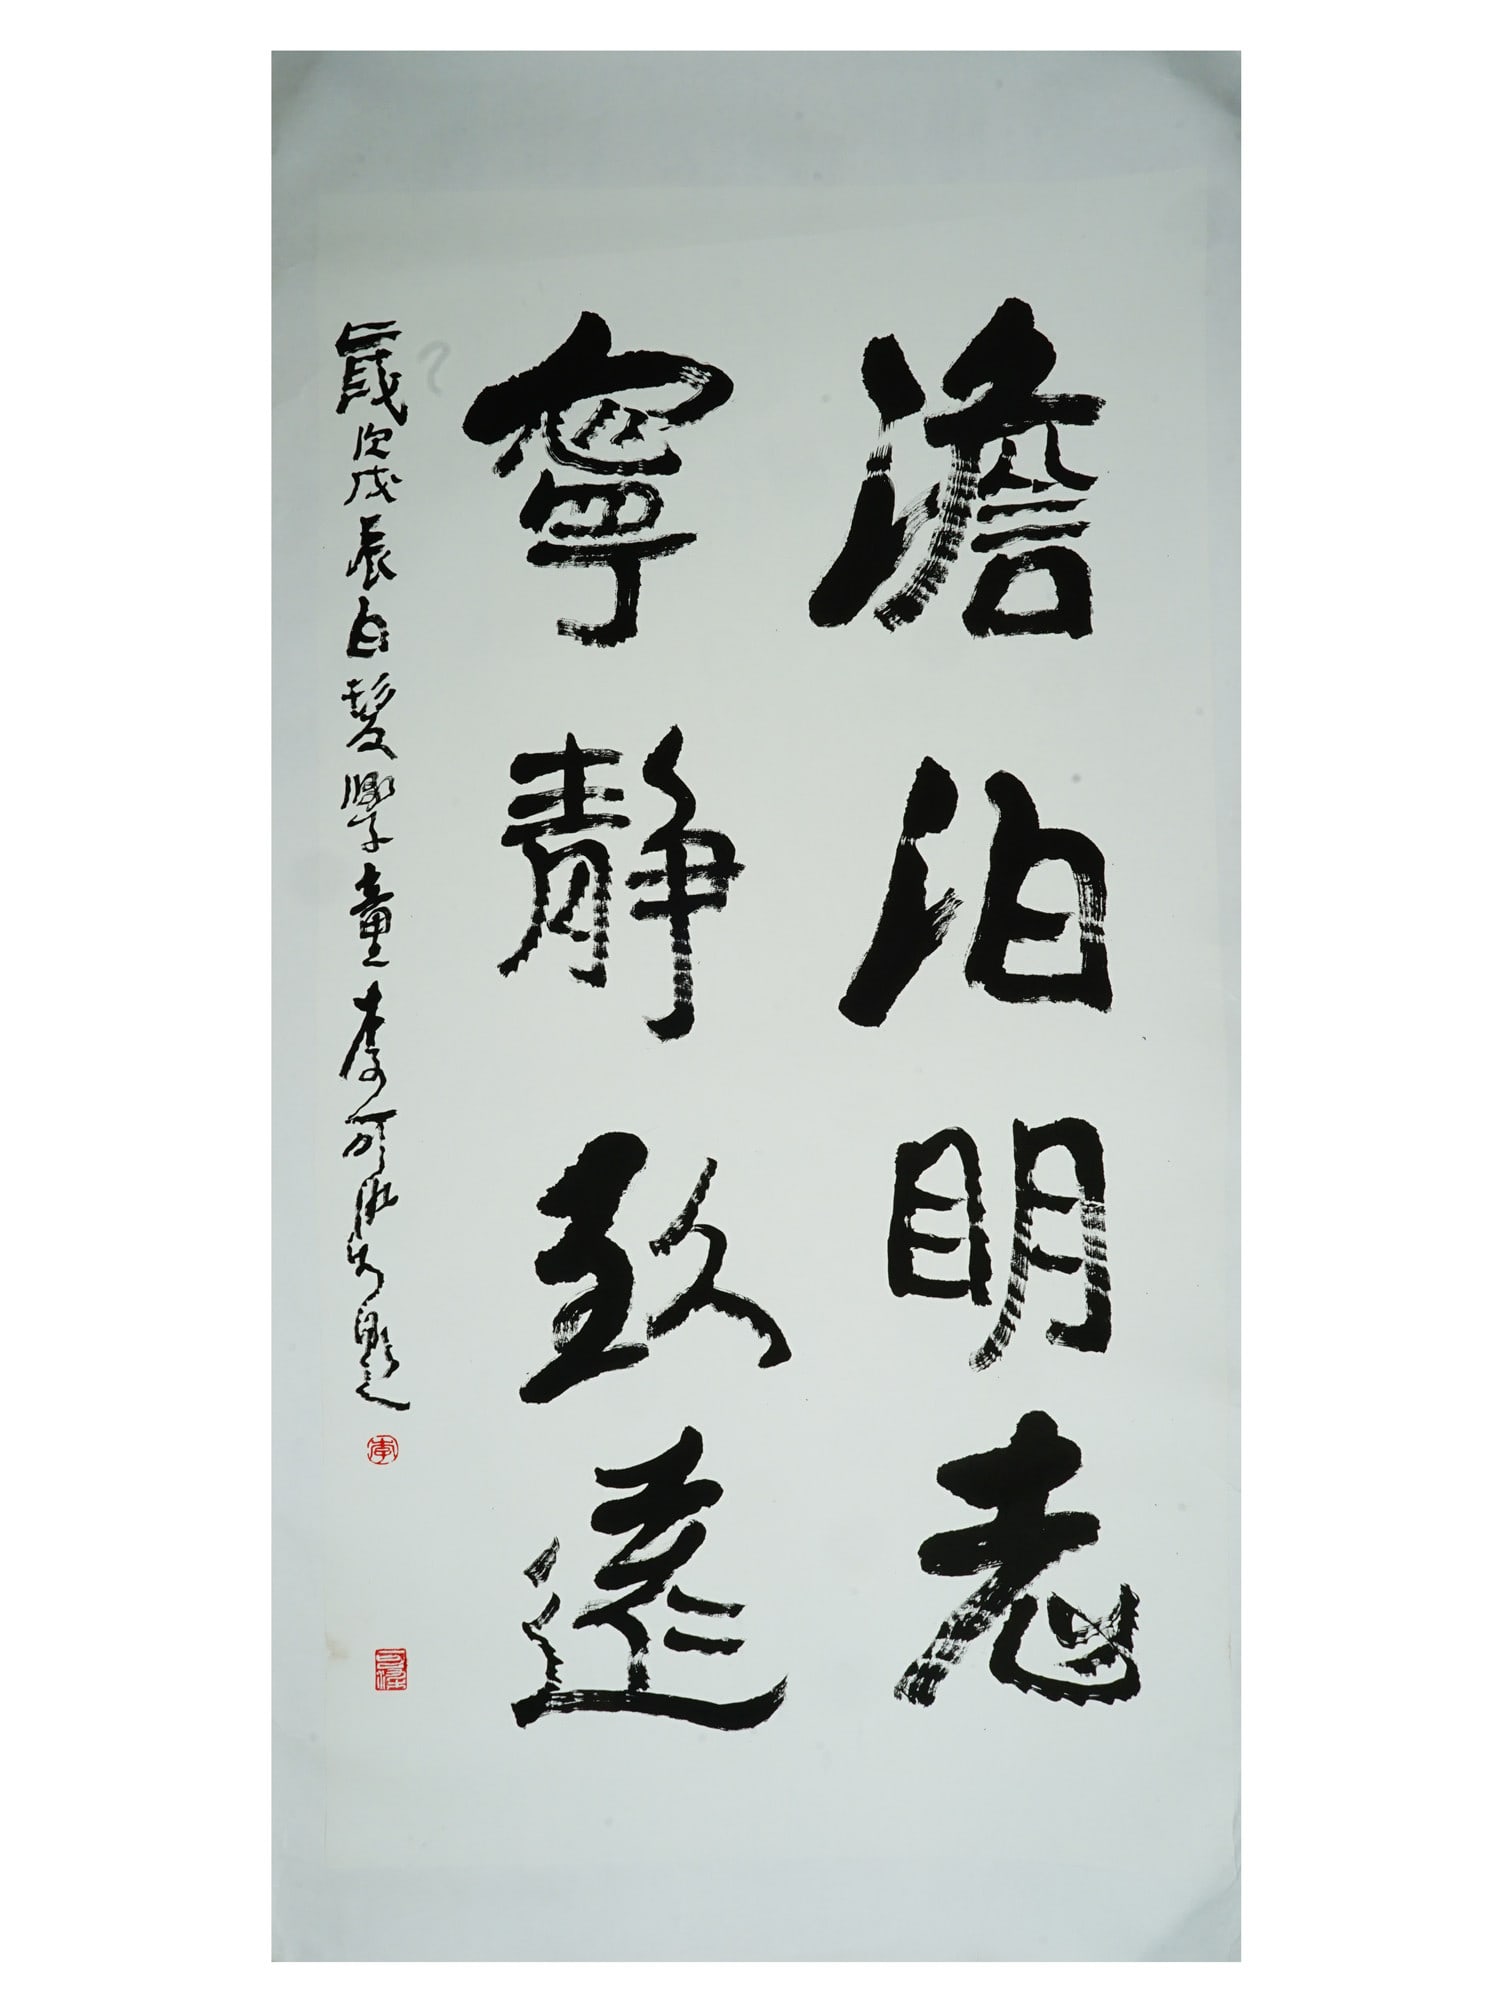 澹泊明志
寧靜致遠
歲次戊辰白髮學童李可染題
李
可染